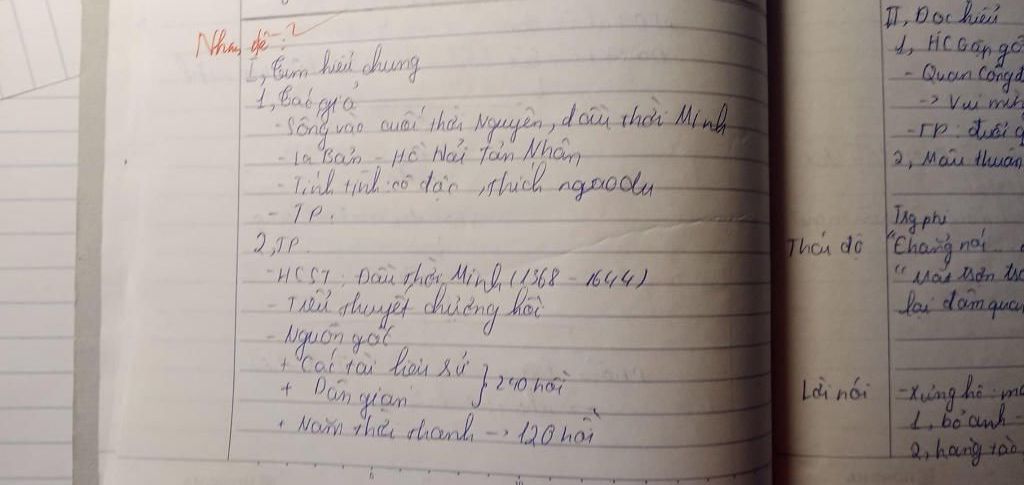 Nhan đề:?
I, Tìm hiểu chung
1, Tác giả
- Sống vào cuối thời Nguyên, đầu thời Minh
- La Bản - Hồ Hải Tản Nhân
- Tính tình: cô độc, thích ngao du
- TP.
2, TP.
- HCST: Đầu thời Minh (1368 - 1644)
- Tiểu thuyết chương hồi
- Nguồn gốc
+ Các tài liệu sử
+ Dân gian } 240 hồi
+ Năm thời thanh -> 120 hồi
II, Đọc hiểu
1, HC Gặp gỡ
- Quan Công
-> Vui
- TP:
2, Mâu thuẫn
Trg phi
Thái độ "Chẳng nói
lại đâm quan
Lời nói - Xưng hô:
1, bỏ anh -
2, hàng tào